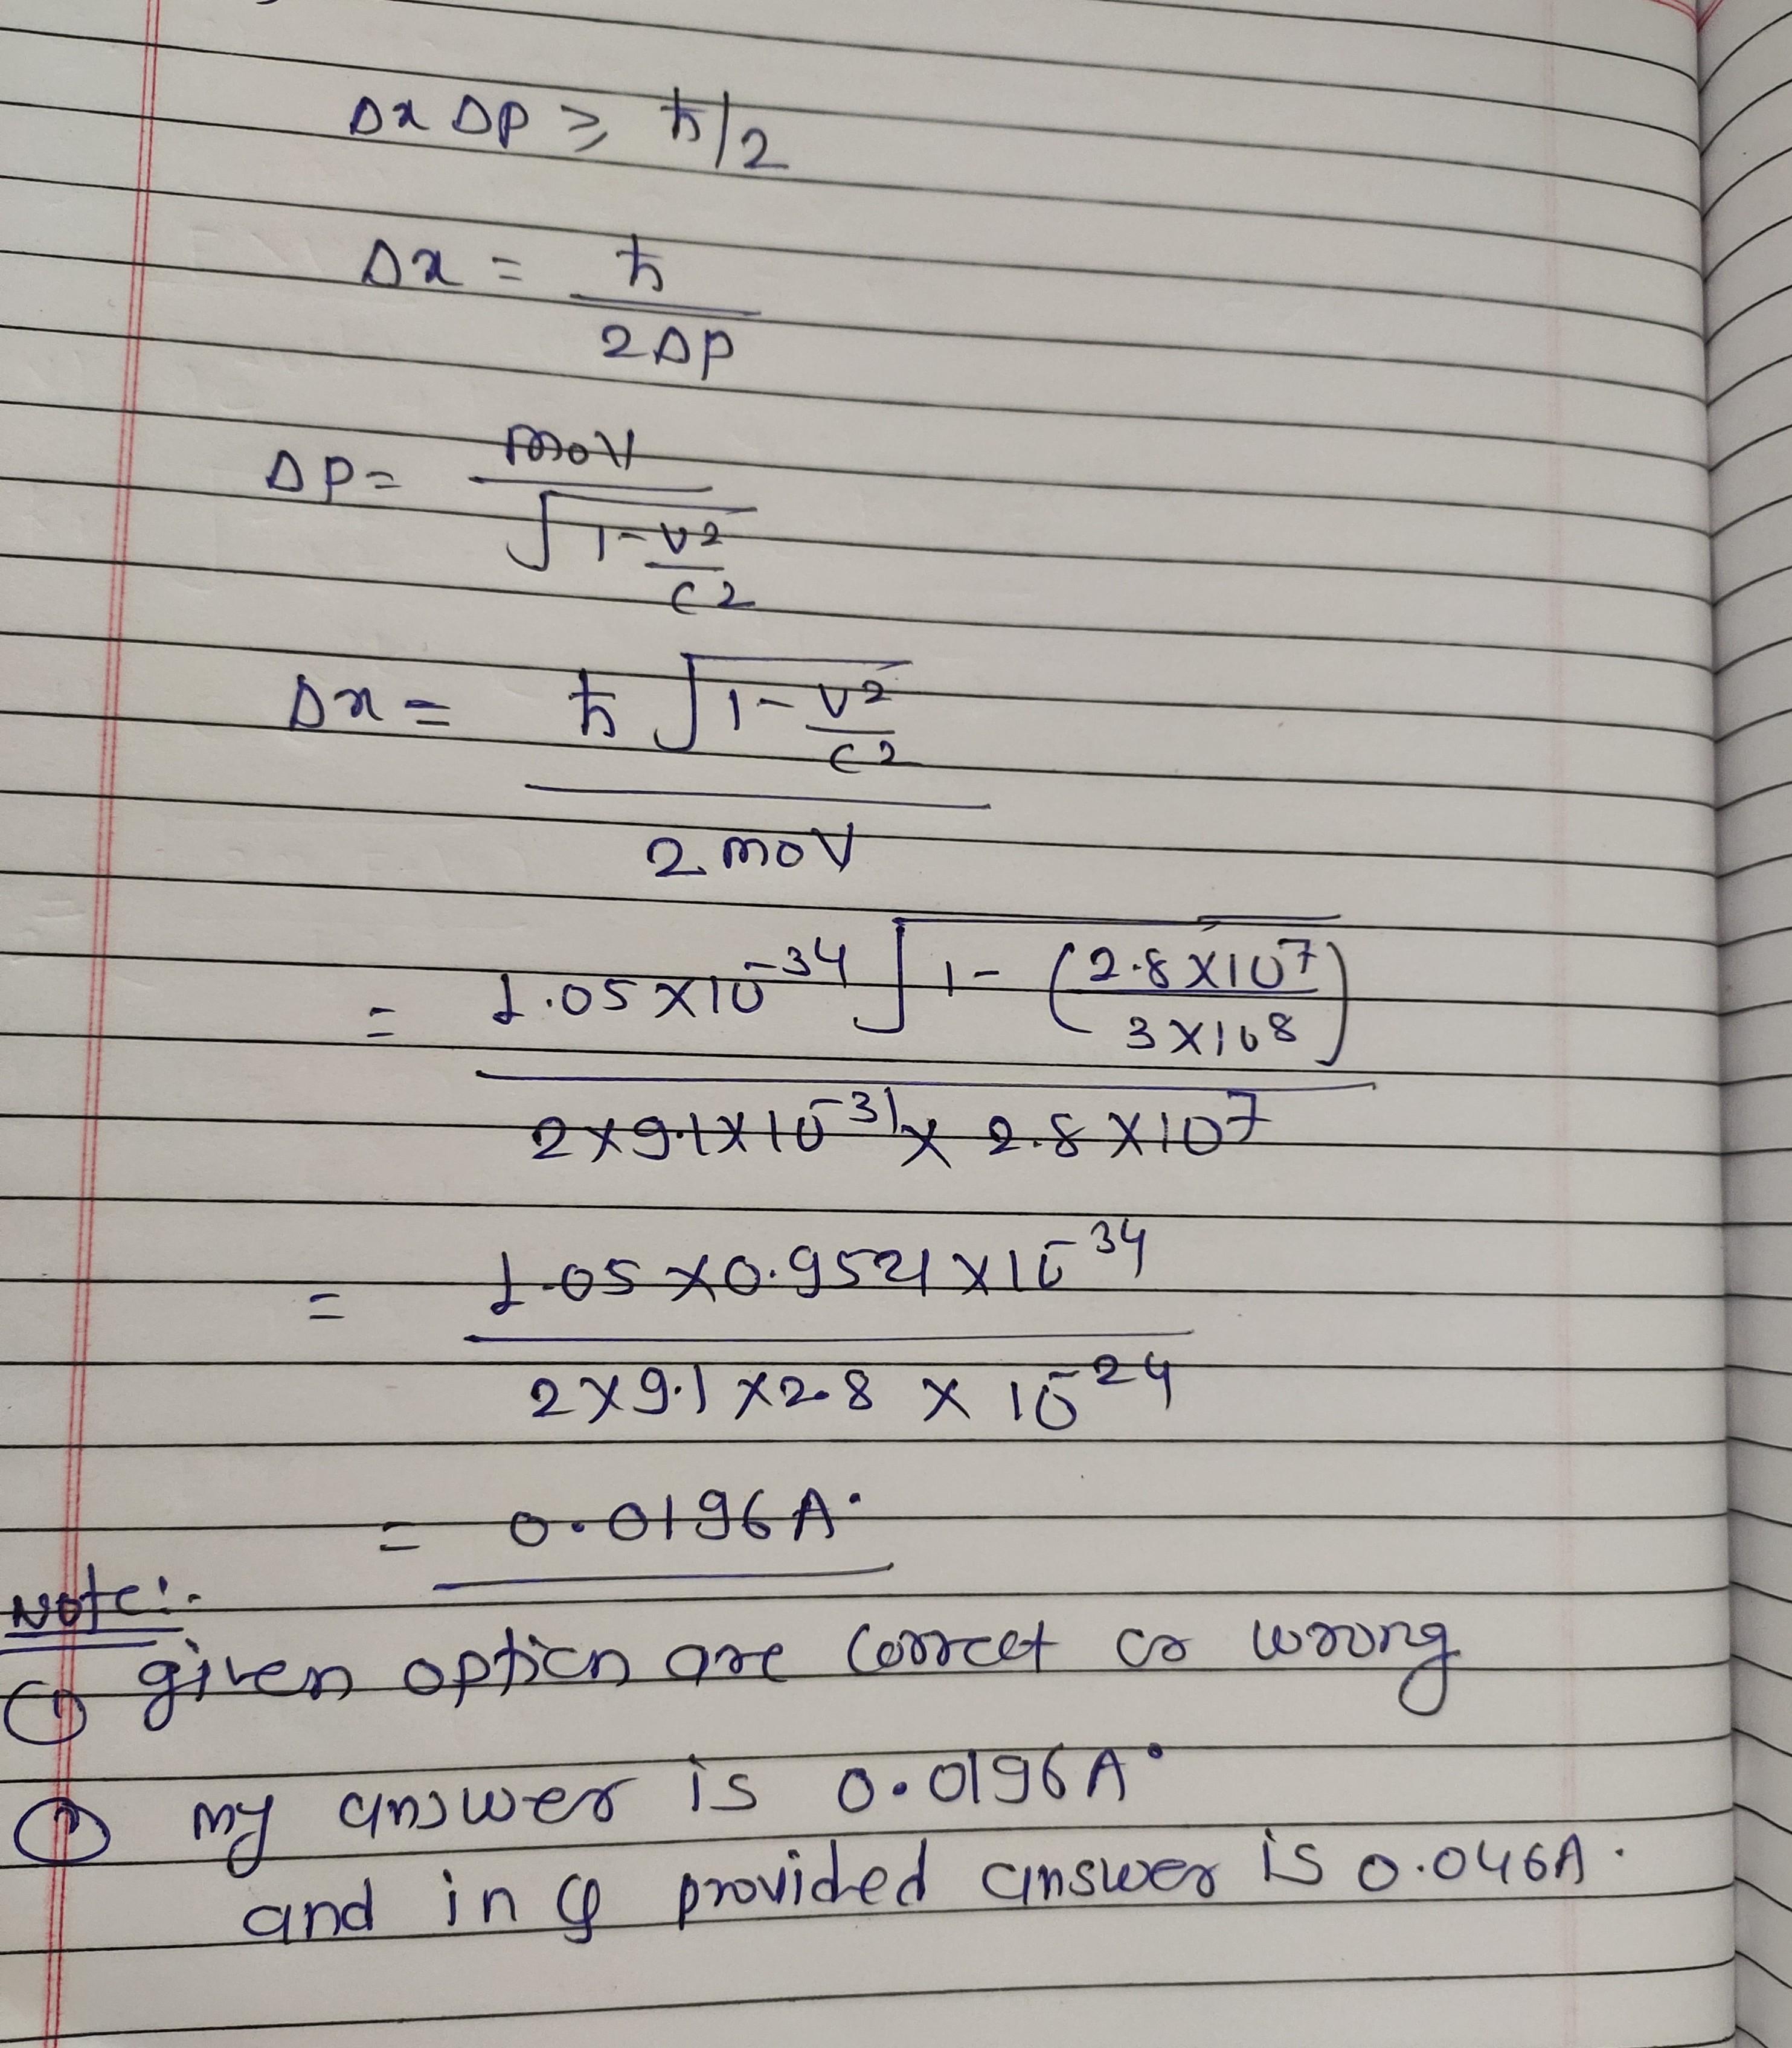 Δx Δp ≥ ħ/2
Δx = ħ
2Δp
Δp = m₀v
√1-v2
c2
Δx = ħ √1-v2
c2
2 m₀v
= 1.05×10⁻³⁴ √1-(2.8×10⁷
3×10⁸)
2×9.1×10⁻³¹× 2.8×10⁷
= 1.05×0.9521×10⁻³⁴
2×9.1×2.8 × 10⁻²⁴
= 0.0196A°
Note:-
① given option are correct or wrong
① my answer is 0.0196A°
and in Q provided answer is 0.046A°